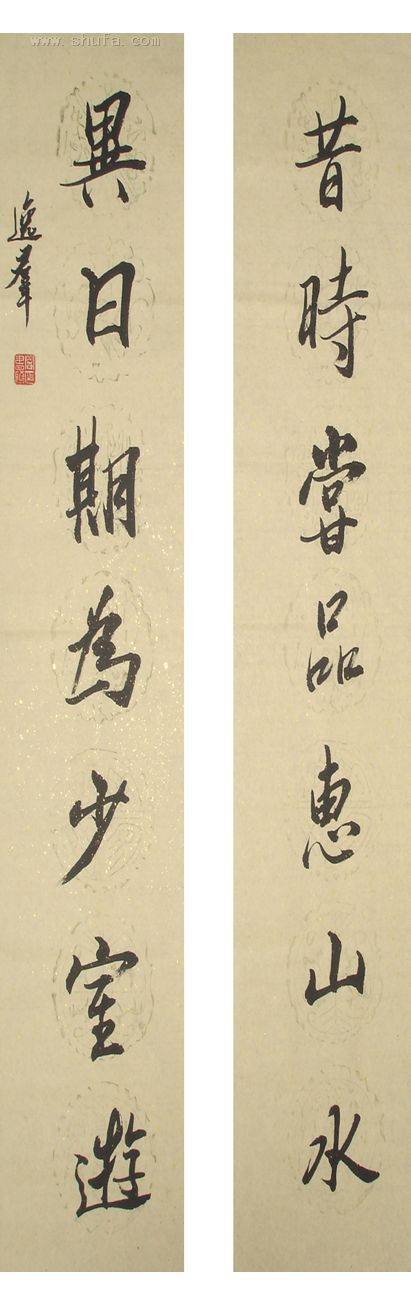 昔時嘗品惠山水
異日期為少室遊
逸羣
www.shufa.com